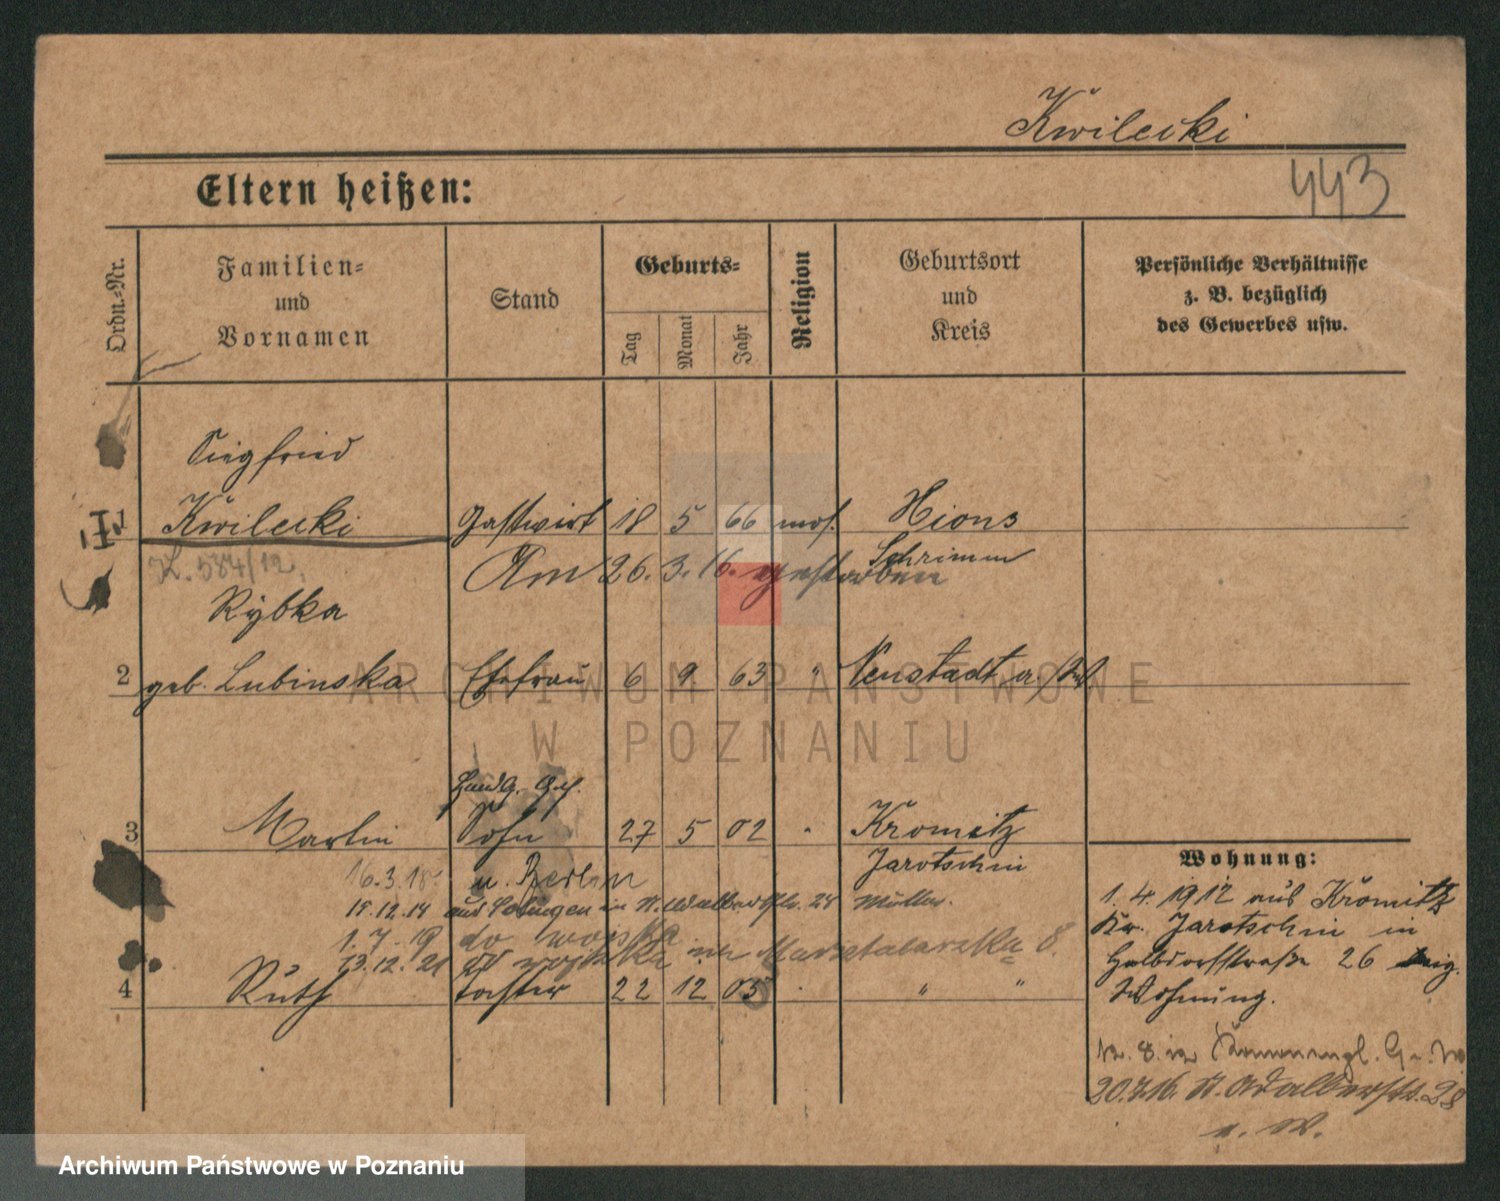 Kwilecki
443
Eltern heißen:
Ordn.-Nr.
Familien-
und
Vornamen
Stand
Geburts-
Tag
Monat
Jahr
Religion
Geburtsort
und
Kreis
Persönliche Verhältnisse
z. B. bezüglich
des Gewerbes usw.
Siegfried
1 Kwilecki Gastwirt 18 5 66 mos. Xions
K. 584/12 Schrimm
Am 26.3.16. gestorben
Rybka
2 geb. Lubinska Ehefrau 6 9 63 " Neustadt a./W.
3 Martin Sohn 27 5 02 " Kromitz
Jarotschin
16.3.18 n. Berlin
18.12.14 aus Solingen in St. Adalbertstr. 28 Müller.
1.7.19 do wojska
13.12.21 z wojska Masztalarska 8.
4 Ruth Tochter 22 12 05 " " "
Wohnung:
1.4.1912 aus Kromitz
Kr. Jarotschin in
Halbdorfstraße 26
Wohnung.
20.7.16. St. Adalbertstr. 28
n. W.
ARCHIWUM PAŃSTWOWE
W POZNANIU
Archiwum Państwowe w Poznaniu